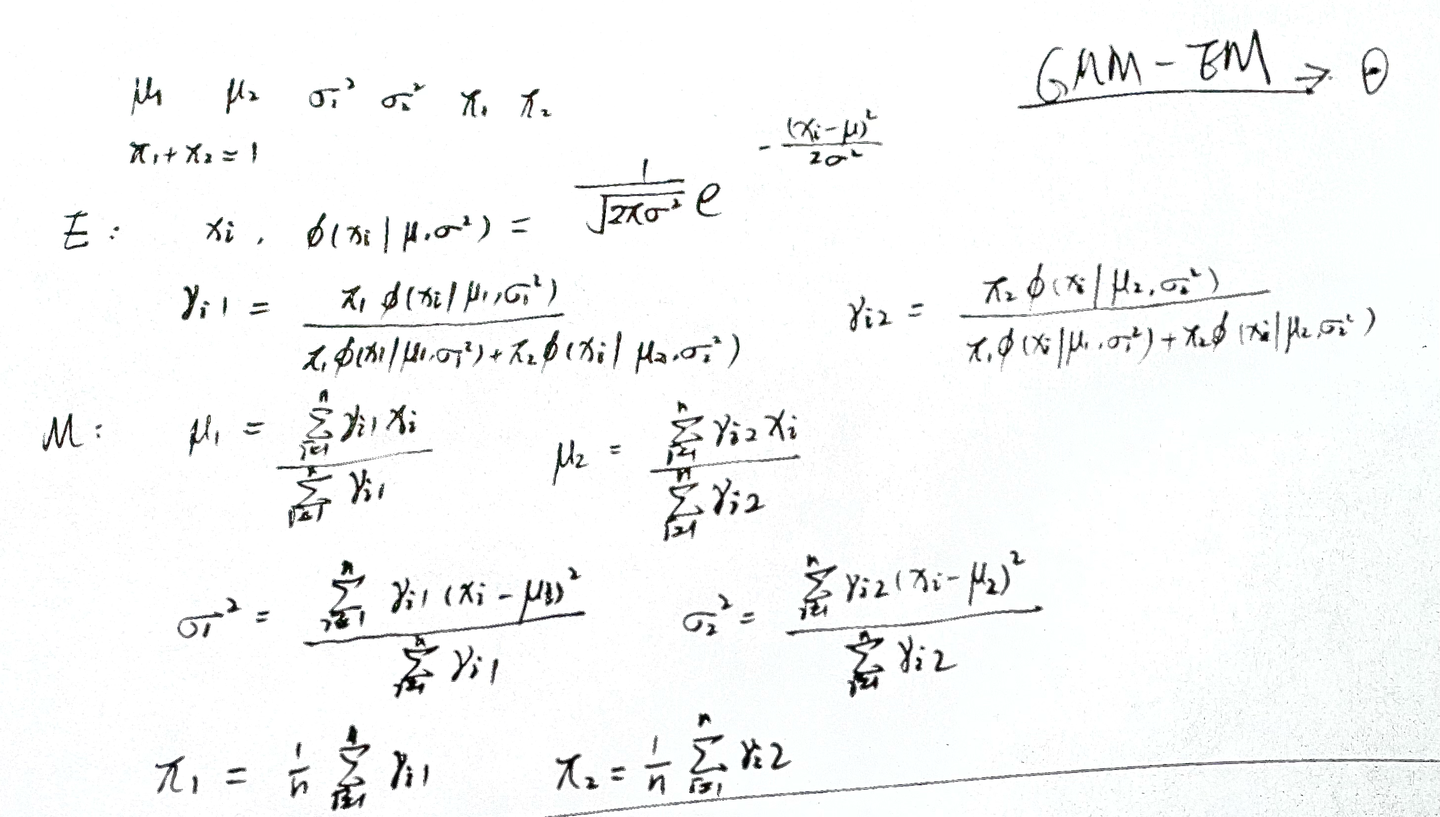 GMM - EM → θ
μ₁ μ₂ σ₁² σ₂² π₁ π₂
π₁ + π₂ = 1
E: xᵢ, φ(xᵢ | μ, σ²) = 1/√(2πσ²) e^(-(xᵢ-μ)²/(2σ²))
γᵢ₁ = π₁ φ(xᵢ | μ₁, σ₁²) / (π₁ φ(xᵢ | μ₁, σ₁²) + π₂ φ(xᵢ | μ₂, σ₂²)) γᵢ₂ = π₂ φ(xᵢ | μ₂, σ₂²) / (π₁ φ(xᵢ | μ₁, σ₁²) + π₂ φ(xᵢ | μ₂, σ₂²))
M: μ₁ = Σⁿᵢ₌₁ γᵢ₁ xᵢ / Σⁿᵢ₌₁ γᵢ₁ μ₂ = Σⁿᵢ₌₁ γᵢ₂ xᵢ / Σⁿᵢ₌₁ γᵢ₂
σ₁² = Σⁿᵢ₌₁ γᵢ₁ (xᵢ - μ₁)² / Σⁿᵢ₌₁ γᵢ₁ σ₂² = Σⁿᵢ₌₁ γᵢ₂ (xᵢ - μ₂)² / Σⁿᵢ₌₁ γᵢ₂
π₁ = 1/n Σⁿᵢ₌₁ γᵢ₁ π₂ = 1/n Σⁿᵢ₌₁ γᵢ₂